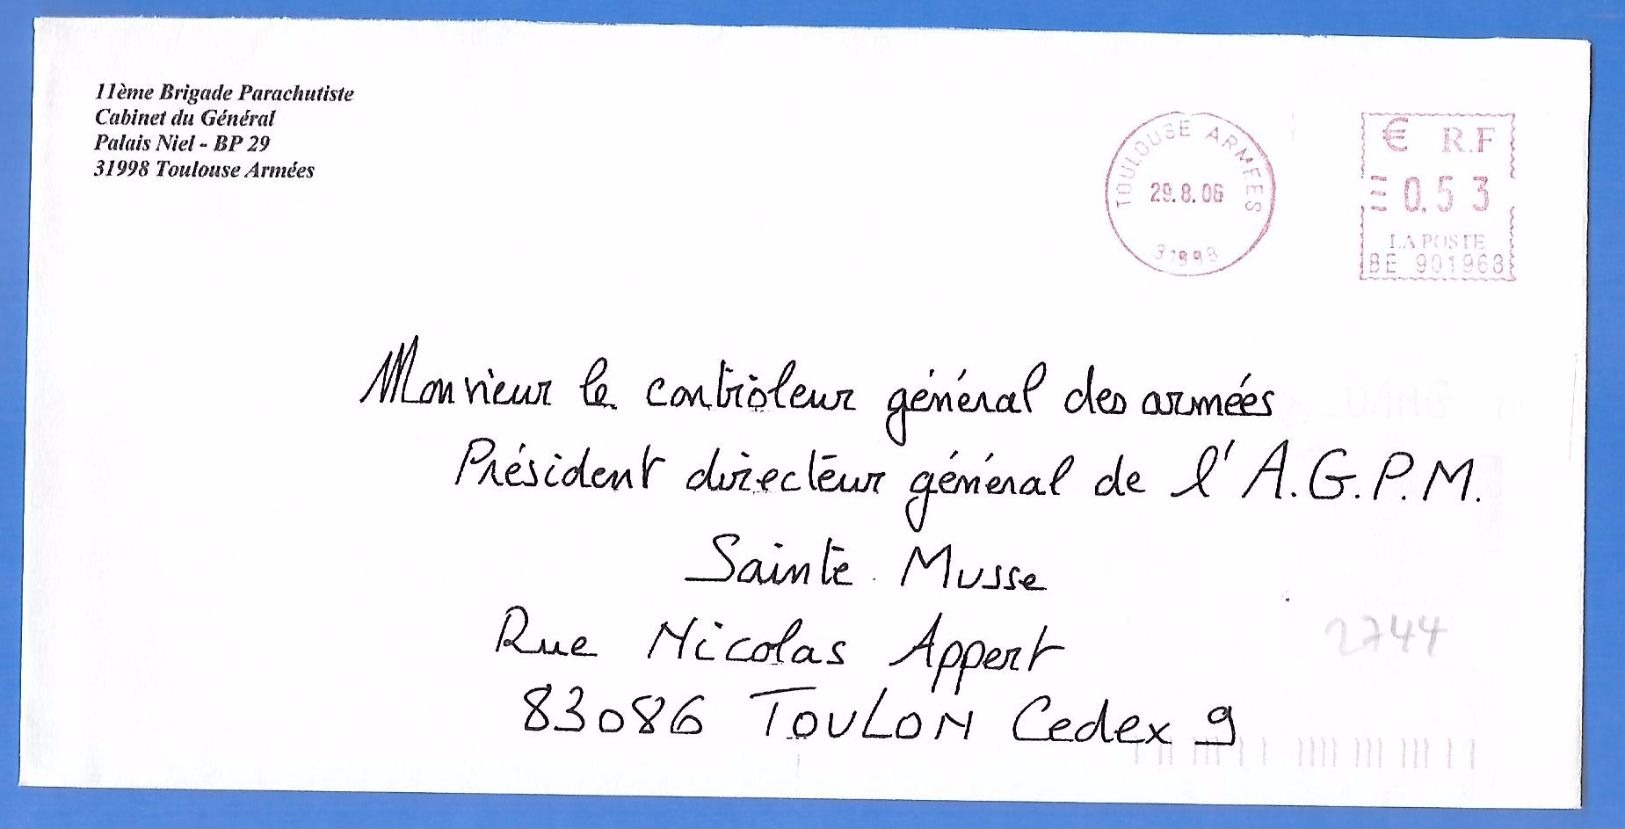 11ème Brigade Parachutiste
Cabinet du Général
Palais Niel - BP 29
31998 Toulouse Armées
TOULOUSE ARMEES
29.8.06
31998
€ R.F
0.53
LA POSTE
BE 901968
Monsieur le contrôleur général des armées
Président directeur général de l'A.G.P.M.
Sainte Musse
Rue Nicolas Appert
2744
83086 TOULON Cedex 9